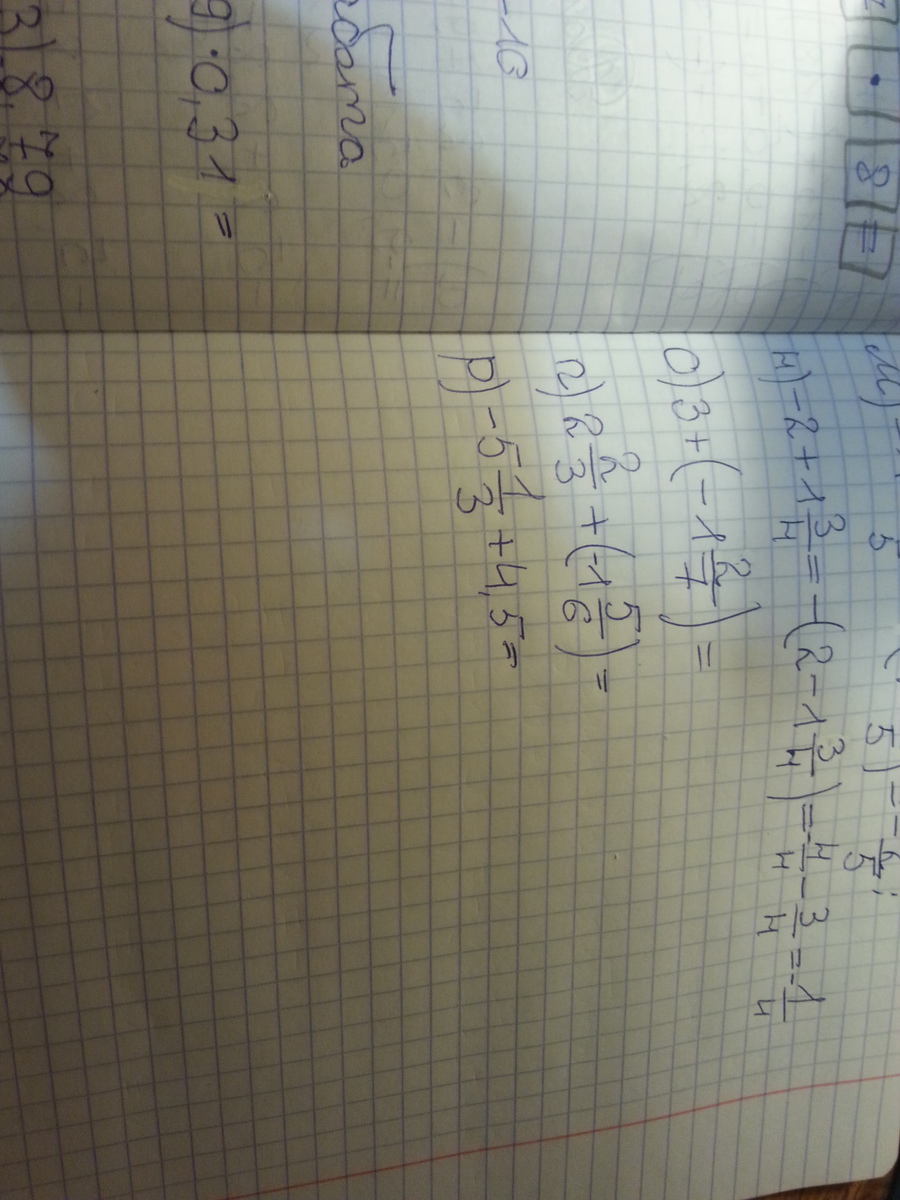 · 8 =
-16
бота
9) · 0,31 =
3) 8,79
н) -2 + 1 3/4 = -(2 - 1 3/4) = -4/4 - 3/4 = -1/4
о) 3 + (-1 2/7) =
п) 2 2/3 + (-1 5/6) =
р) -5 1/3 + 4,5 =